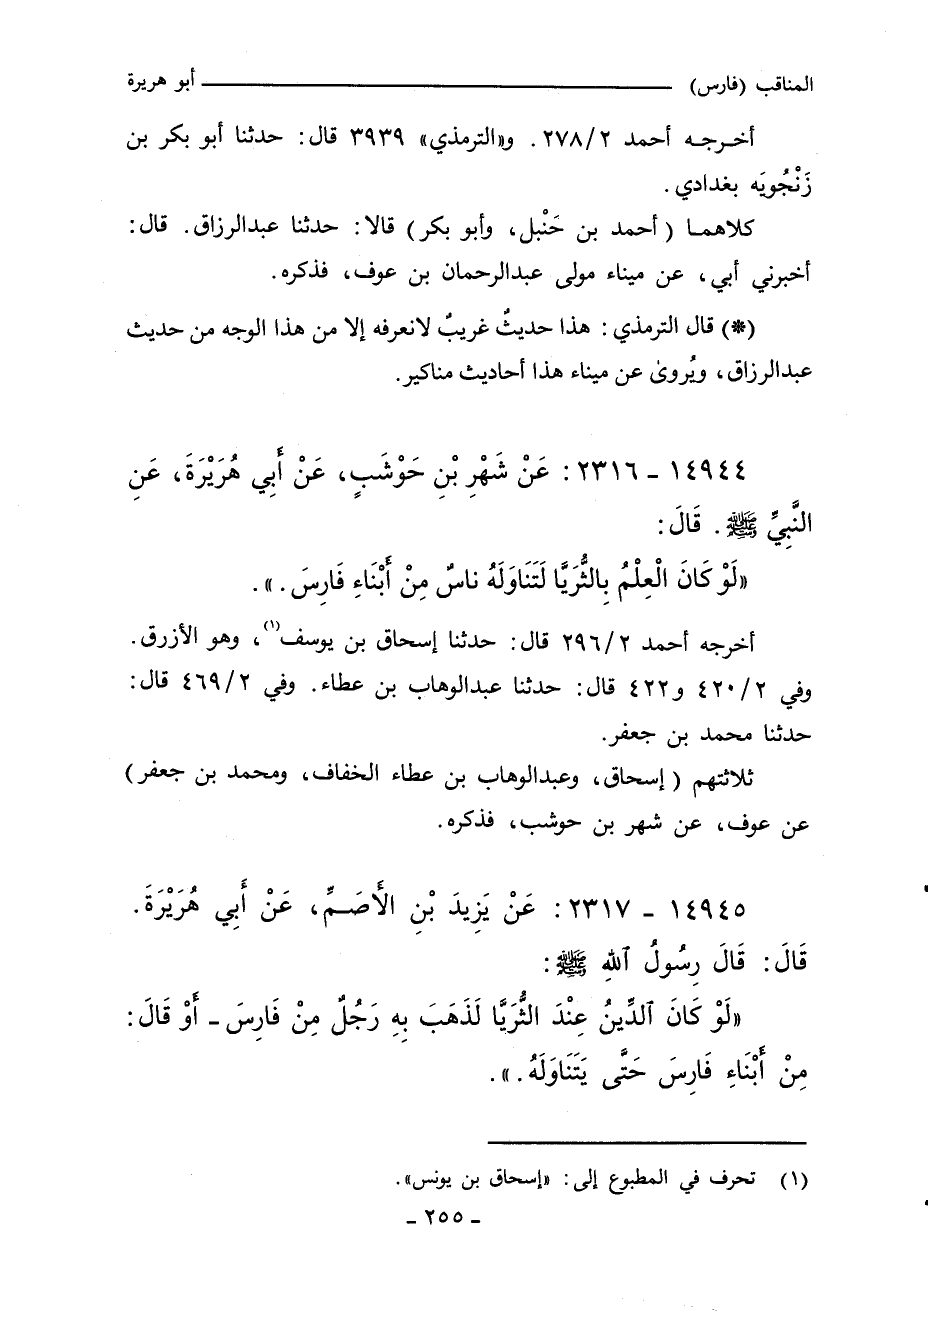 المناقب (فارس) أبو هريرة
أخرجه أحمد ٢٧٨/٢ . و«الترمذي» ٣٩٣٩ قال: حدثنا أبو بكر بن
زَنْجُويَه بغدادي .
كلاهما (أحمد بن حَنْبل، وأبو بكر) قالا: حدثنا عبدالرزاق. قال:
أخبرني أبي، عن ميناء مولى عبدالرحمان بن عوف، فذكره.
(*) قال الترمذي: هذا حديثٌ غريبٌ لانعرفه إلا من هذا الوجه من حديث
عبدالرزاق، ويُروىٰ عن ميناء هذا أحاديث مناكير.
١٤٩٤٤ - ٢٣١٦: عَنْ شَهْرِ بْنِ حَوْشَبٍ، عَنْ أَبِي هُرَيْرَةَ، عَنِ
النَّبِيِّ ﷺ . قَالَ:
«لَوْ كَانَ الْعِلْمُ بِالثُّرَيَّا لَتَنَاوَلَهُ ناسٌ مِنْ أَبْنَاءِ فَارِسَ .» .
أخرجه أحمد ٢٩٦/٢ قال: حدثنا إسحاق بن يوسف(١)، وهو الأزرق.
وفي ٤٢٠/٢ و٤٢٢ قال: حدثنا عبدالوهاب بن عطاء. وفي ٤٦٩/٢ قال:
حدثنا محمد بن جعفر.
ثلاثتهم (إسحاق، وعبدالوهاب بن عطاء الخفاف، ومحمد بن جعفر)
عن عوف، عن شهر بن حوشب، فذكره.
١٤٩٤٥ - ٢٣١٧: عَنْ يَزِيدَ بْنِ الأَصَمِّ، عَنْ أَبِي هُرَيْرَةَ.
قَالَ: قَالَ رَسُولُ ٱللهِ ﷺ:
«لَوْ كَانَ ٱلدِّينُ عِنْدَ الثُّرَيَّا لَذَهَبَ بِهِ رَجُلٌ مِنْ فَارِسَ - أَوْ قَالَ:
مِنْ أَبْنَاءِ فَارِسَ حَتَّى يَتَنَاوَلَهُ .» .
(١) تحرف في المطبوع إلى: «إسحاق بن يونس».
- ٢٥٥ -